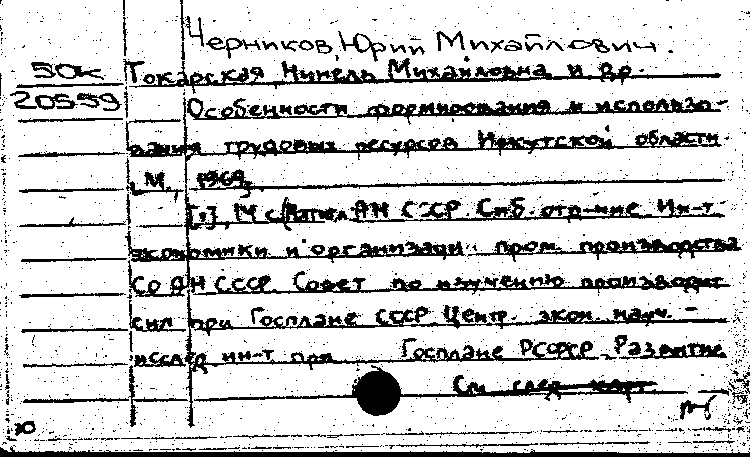 Черников, Юрий Михайлович.
50к Токарская, Нинель Михайловна и др.
20559 Особенности формирования и использо-
вания трудовых ресурсов Иркутской области.
М., 1969.
[1], М с. АН СССР. Сиб. отд-ние. Ин-т
экономики и организаци пром. производства
Со АН СССР. Совет по изучению производит
сил при Госплане СССР. Центр. экон. науч. -
исслед ин-т при Госплане РСФСР. Развитие
См. след. карт.